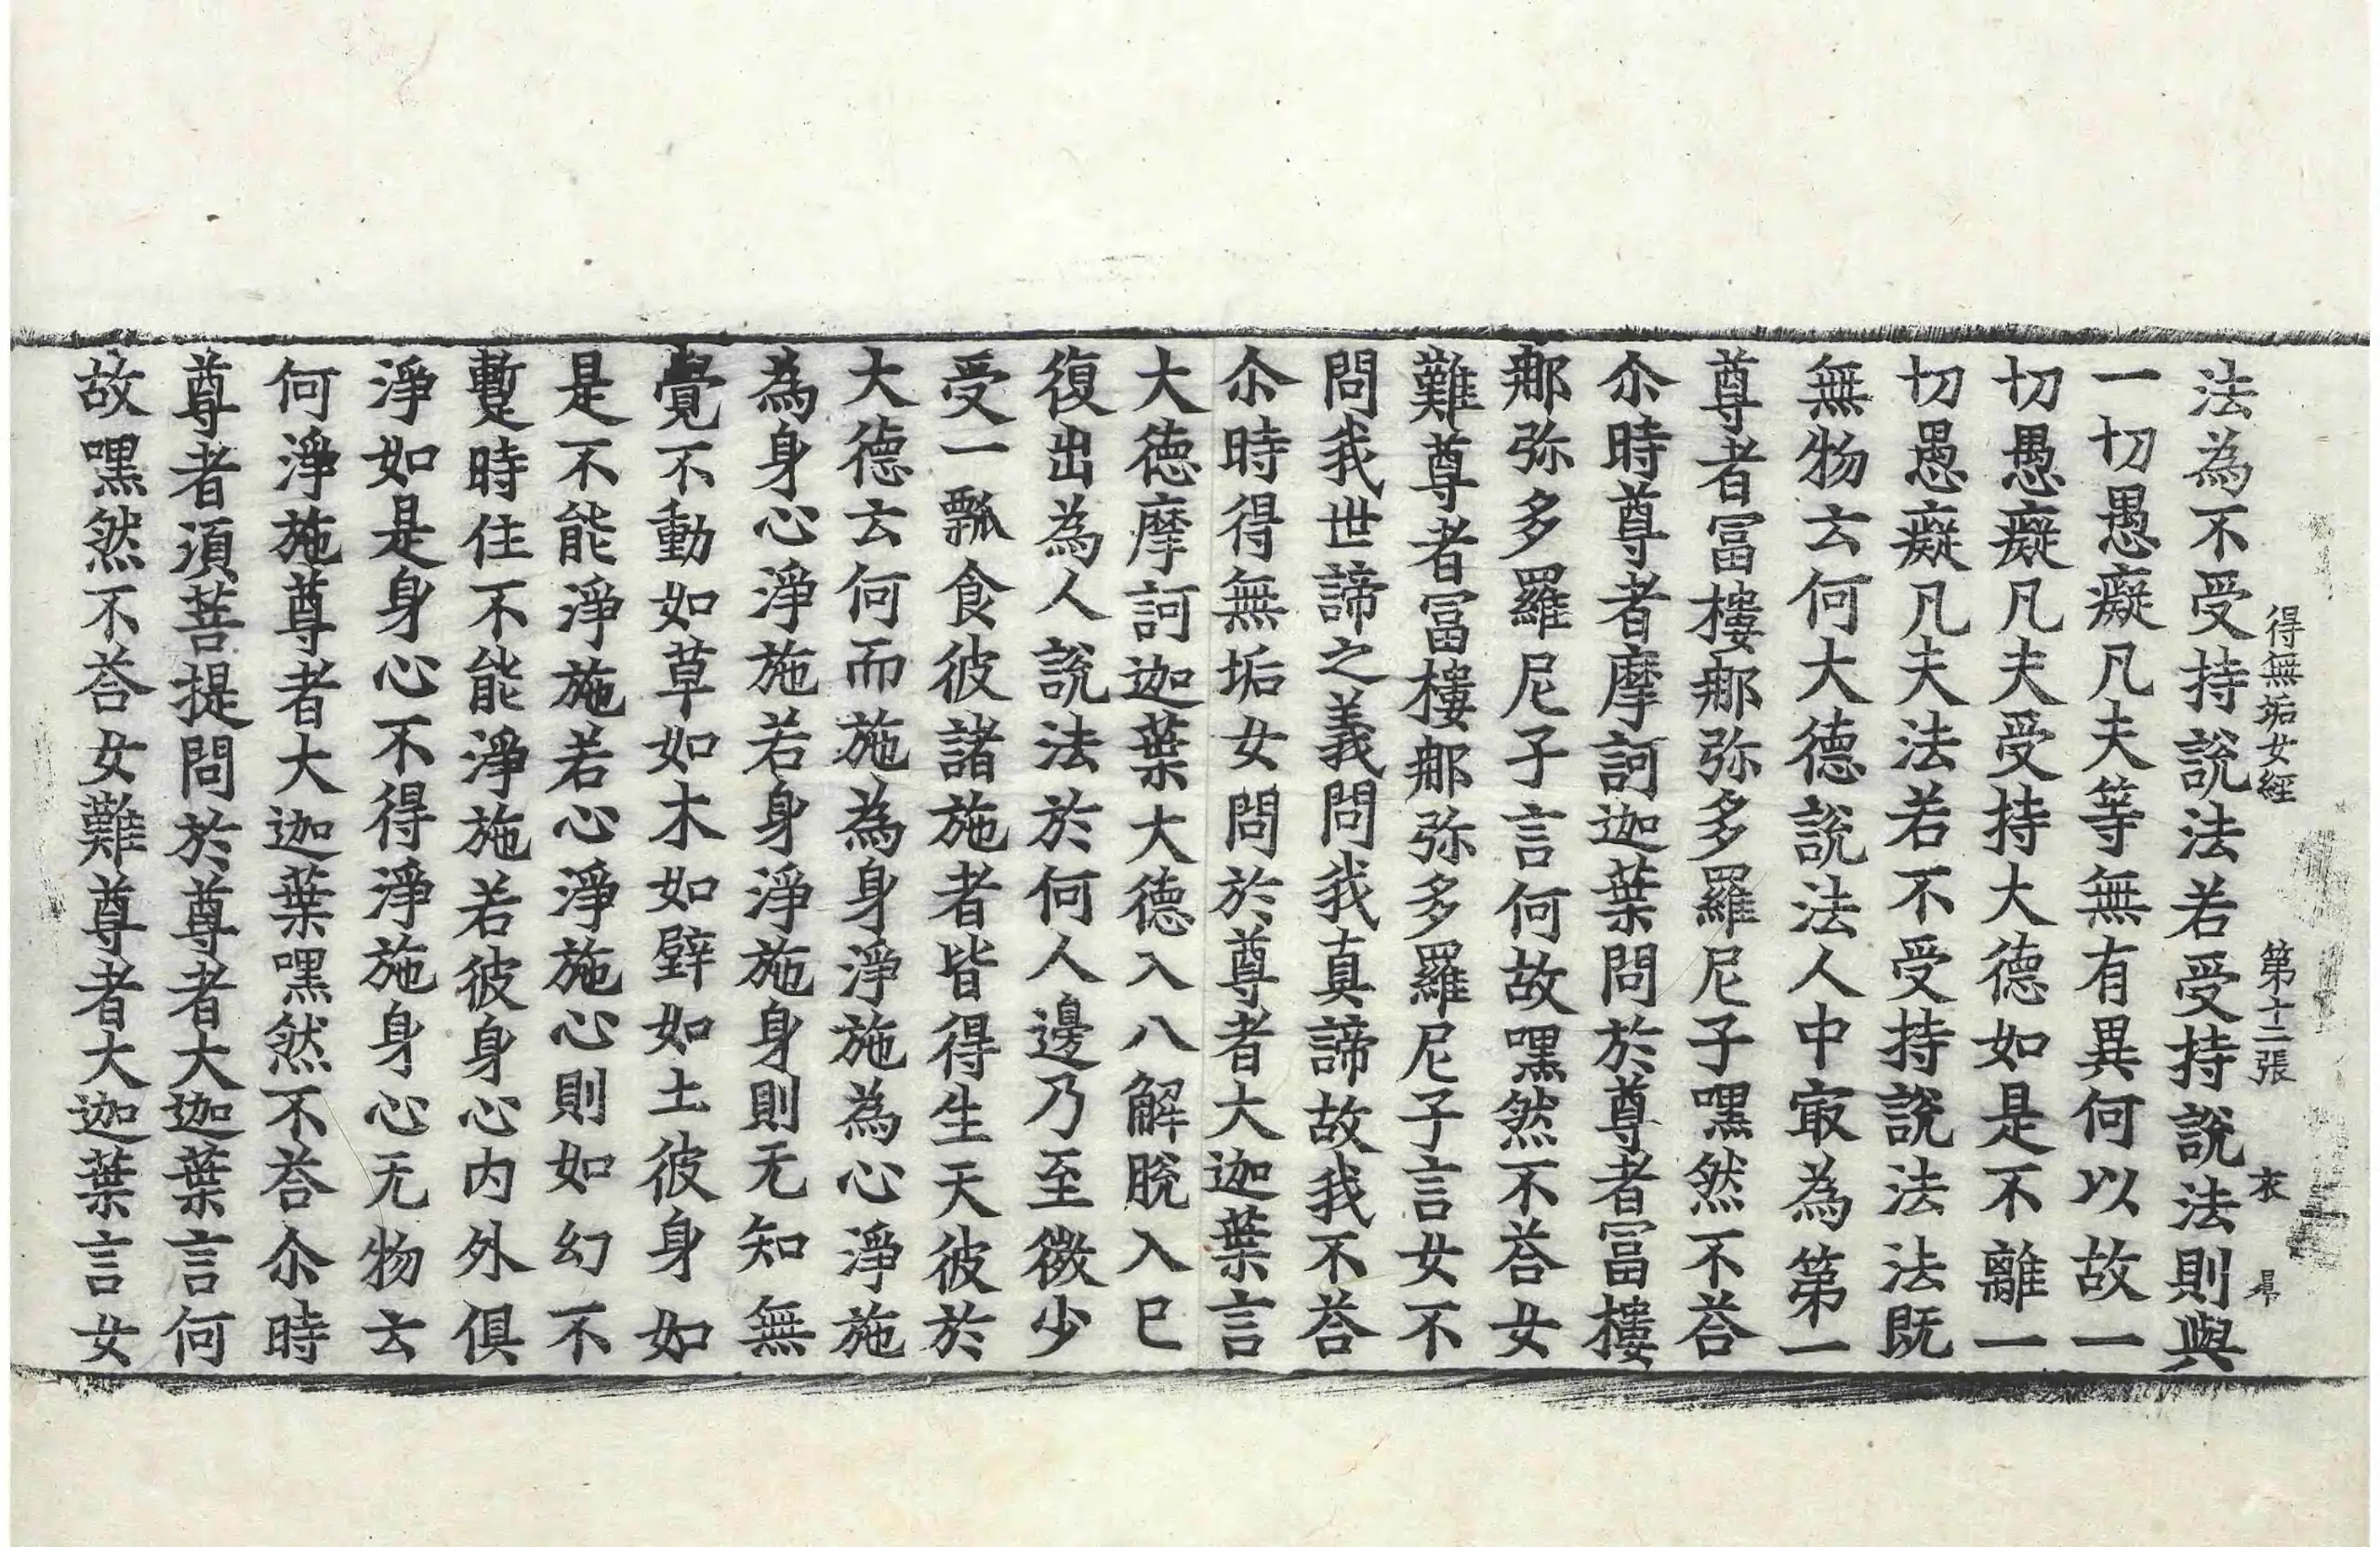 得無垢女經　第十二張　衣
法為不受持說法若受持說法則與
一切愚癡凡夫等無有異何以故一
切愚癡凡夫受持大德如是不離一
切愚癡凡夫法若不受持說法法既
無物云何大德說法人中㝡為第一
尊者冨樓那弥多羅尼子嘿然不荅
尒時尊者摩訶迦葉問於尊者冨樓
那弥多羅尼子言何故嘿然不荅女
難尊者冨樓那弥多羅尼子言女不
問我世諦之義問我真諦故我不荅
尒時得無垢女問於尊者大迦葉言
大德摩訶迦葉大德入八解脫入已
復出為人說法於何人邊乃至微少
受一瓢食彼諸施者皆得生天彼於
大德云何而施為身淨施為心淨施
為身心淨施若身淨施身則无知無
覺不動如草如木如壁如土彼身如
是不能淨施若心淨施心則如幻不
蹔時住不能淨施若彼身心內外俱
淨如是身心不得淨施身心无物云
何淨施尊者大迦葉嘿然不荅尒時
尊者湏菩提問於尊者大迦葉言何
故嘿然不荅女難尊者大迦葉言女